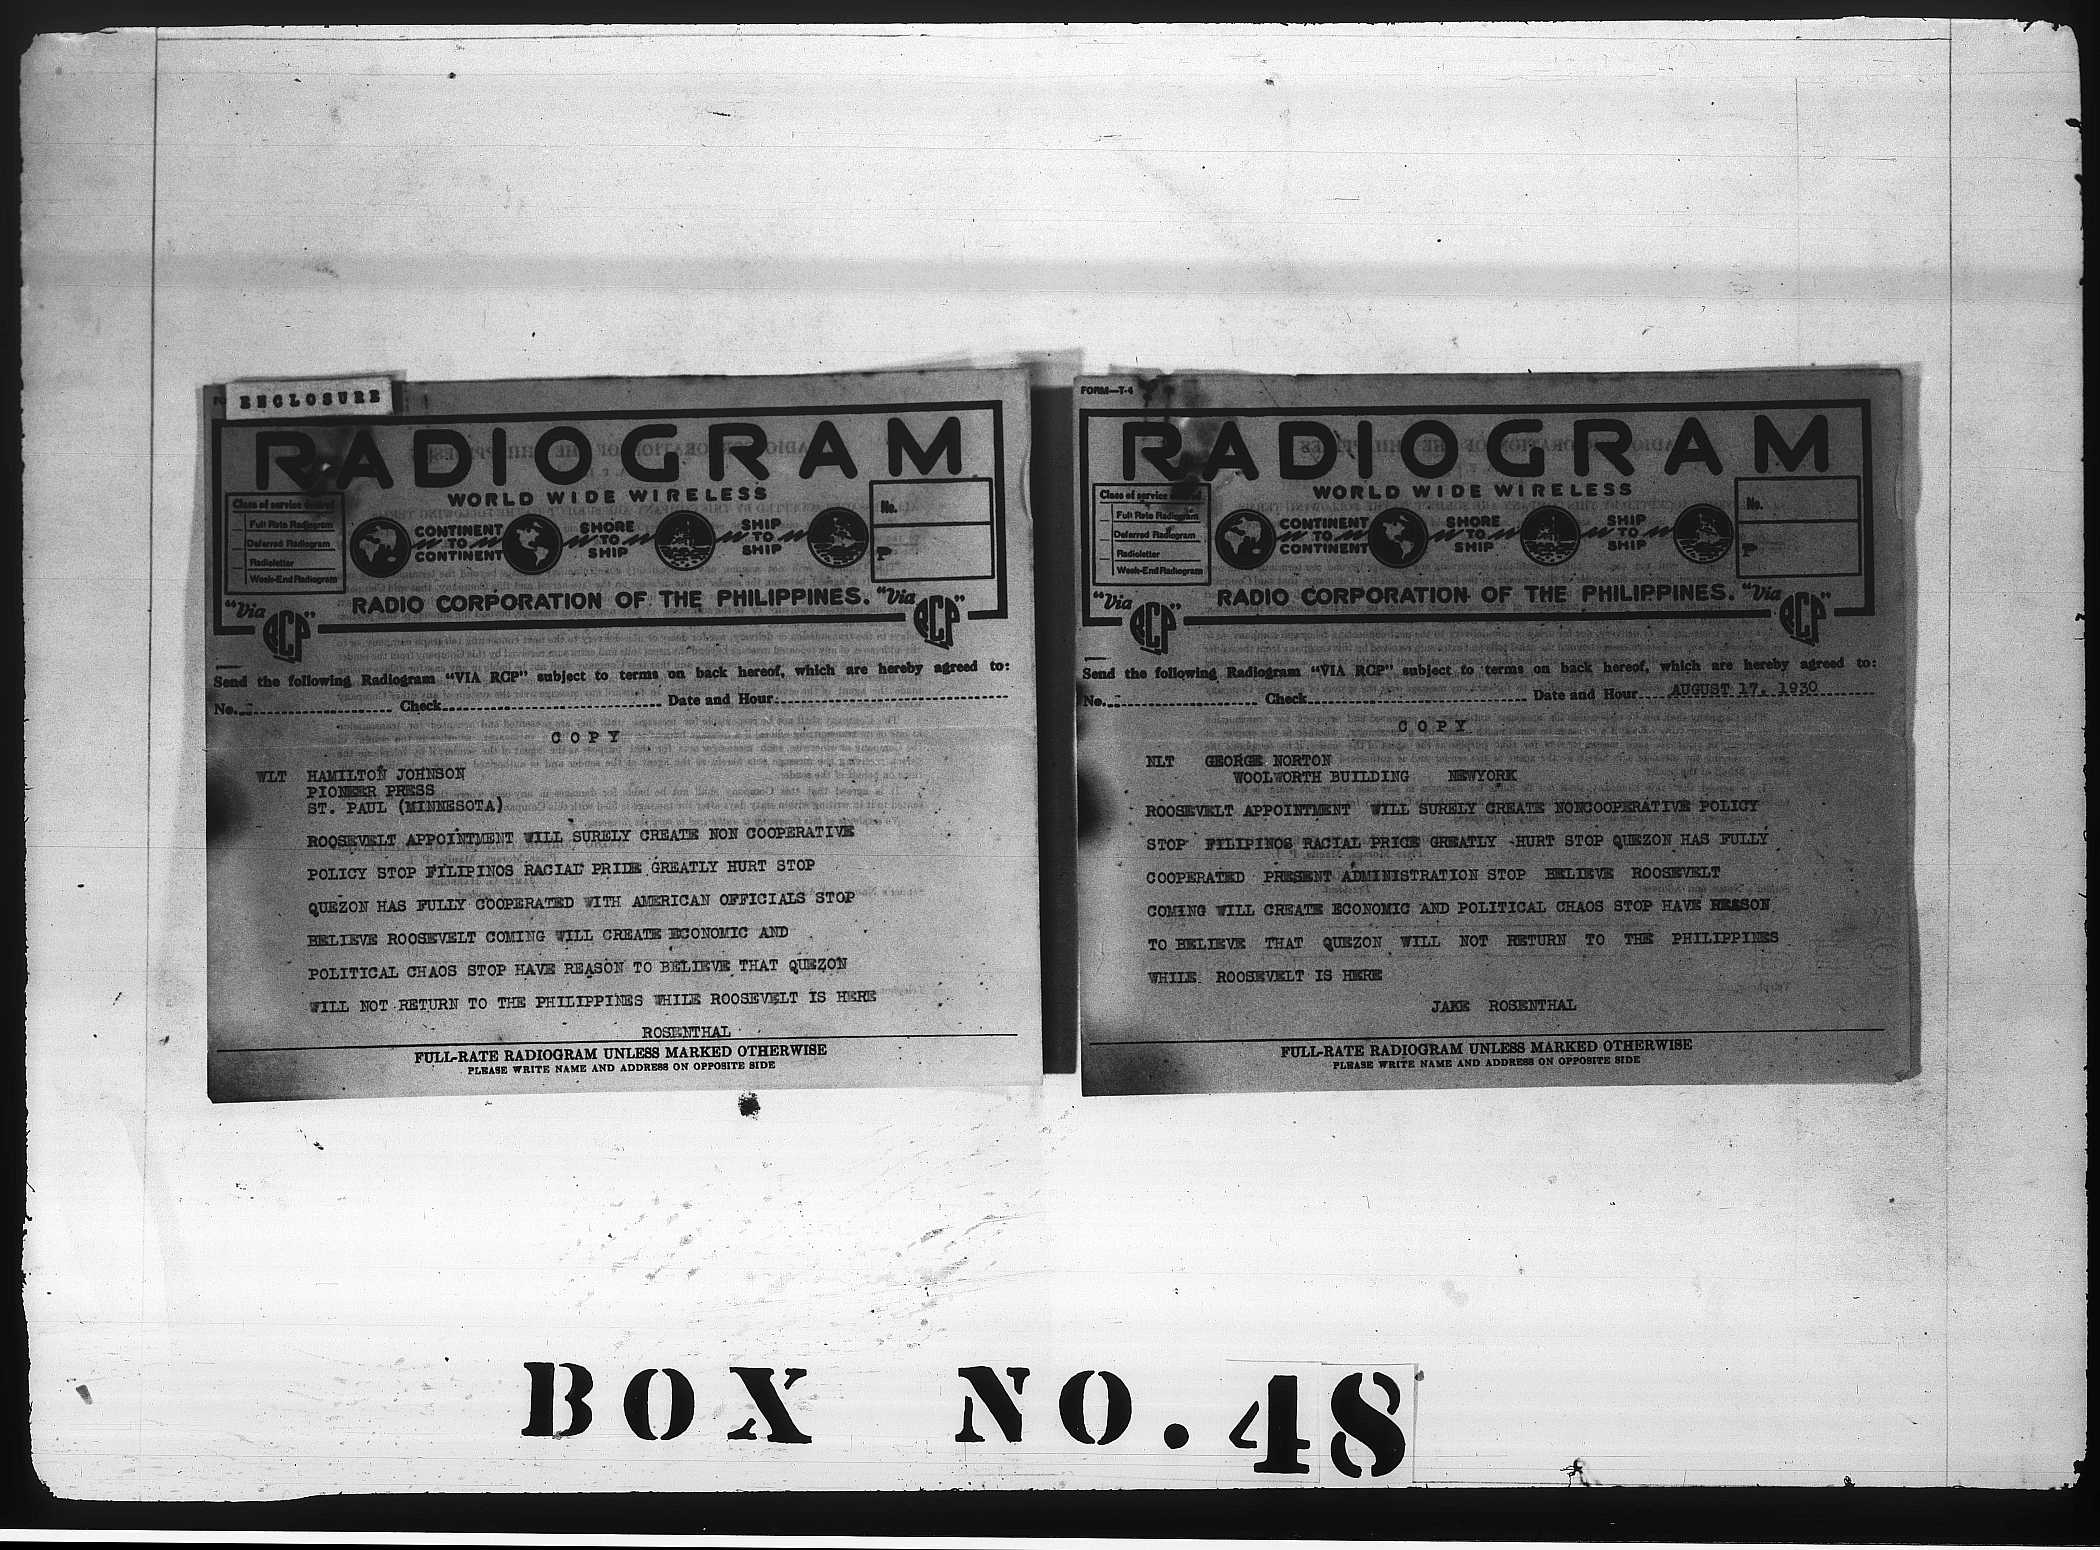 ENCLOSURE
RADIOGRAM
WORLD WIDE WIRELESS
Class of service desired
Full Rate Radiogram
Deferred Radiogram
Radioletter
Week-End Radiogram
CONTINENT
TO
CONTINENT
SHORE
TO
SHIP
SHIP
TO
SHIP
No.
₱
"Via RCP"
RADIO CORPORATION OF THE PHILIPPINES.
"Via RCP"
Send the following Radiogram "VIA RCP" subject to terms on back hereof, which are hereby agreed to:
No. Check Date and Hour
COPY
WLT HAMILTON JOHNSON
PIONEER PRESS
ST. PAUL (MINNESOTA)
ROOSEVELT APPOINTMENT WILL SURELY CREATE NON COOPERATIVE
POLICY STOP FILIPINOS RACIAL PRIDE GREATLY HURT STOP
QUEZON HAS FULLY COOPERATED WITH AMERICAN OFFICIALS STOP
BELIEVE ROOSEVELT COMING WILL CREATE ECONOMIC AND
POLITICAL CHAOS STOP HAVE REASON TO BELIEVE THAT QUEZON
WILL NOT RETURN TO THE PHILIPPINES WHILE ROOSEVELT IS HERE
ROSENTHAL
FULL-RATE RADIOGRAM UNLESS MARKED OTHERWISE
PLEASE WRITE NAME AND ADDRESS ON OPPOSITE SIDE
FORM—T-4
RADIOGRAM
WORLD WIDE WIRELESS
Class of service desired
Full Rate Radiogram
Deferred Radiogram
Radioletter
Week-End Radiogram
CONTINENT
TO
CONTINENT
SHORE
TO
SHIP
SHIP
TO
SHIP
No.
₱
"Via RCP"
RADIO CORPORATION OF THE PHILIPPINES.
"Via RCP"
Send the following Radiogram "VIA RCP" subject to terms on back hereof, which are hereby agreed to:
No. Check Date and Hour AUGUST 17, 1930
COPY
NLT GEORGE NORTON
WOOLWORTH BUILDING NEWYORK
ROOSEVELT APPOINTMENT WILL SURELY CREATE NONCOOPERATIVE POLICY
STOP FILIPINOS RACIAL PRICE GREATLY HURT STOP QUEZON HAS FULLY
COOPERATED PRESENT ADMINISTRATION STOP BELIEVE ROOSEVELT
COMING WILL CREATE ECONOMIC AND POLITICAL CHAOS STOP HAVE REASON
TO BELIEVE THAT QUEZON WILL NOT RETURN TO THE PHILIPPINES
WHILE ROOSEVELT IS HERE
JAKE ROSENTHAL
FULL-RATE RADIOGRAM UNLESS MARKED OTHERWISE
PLEASE WRITE NAME AND ADDRESS ON OPPOSITE SIDE
BOX NO. 48